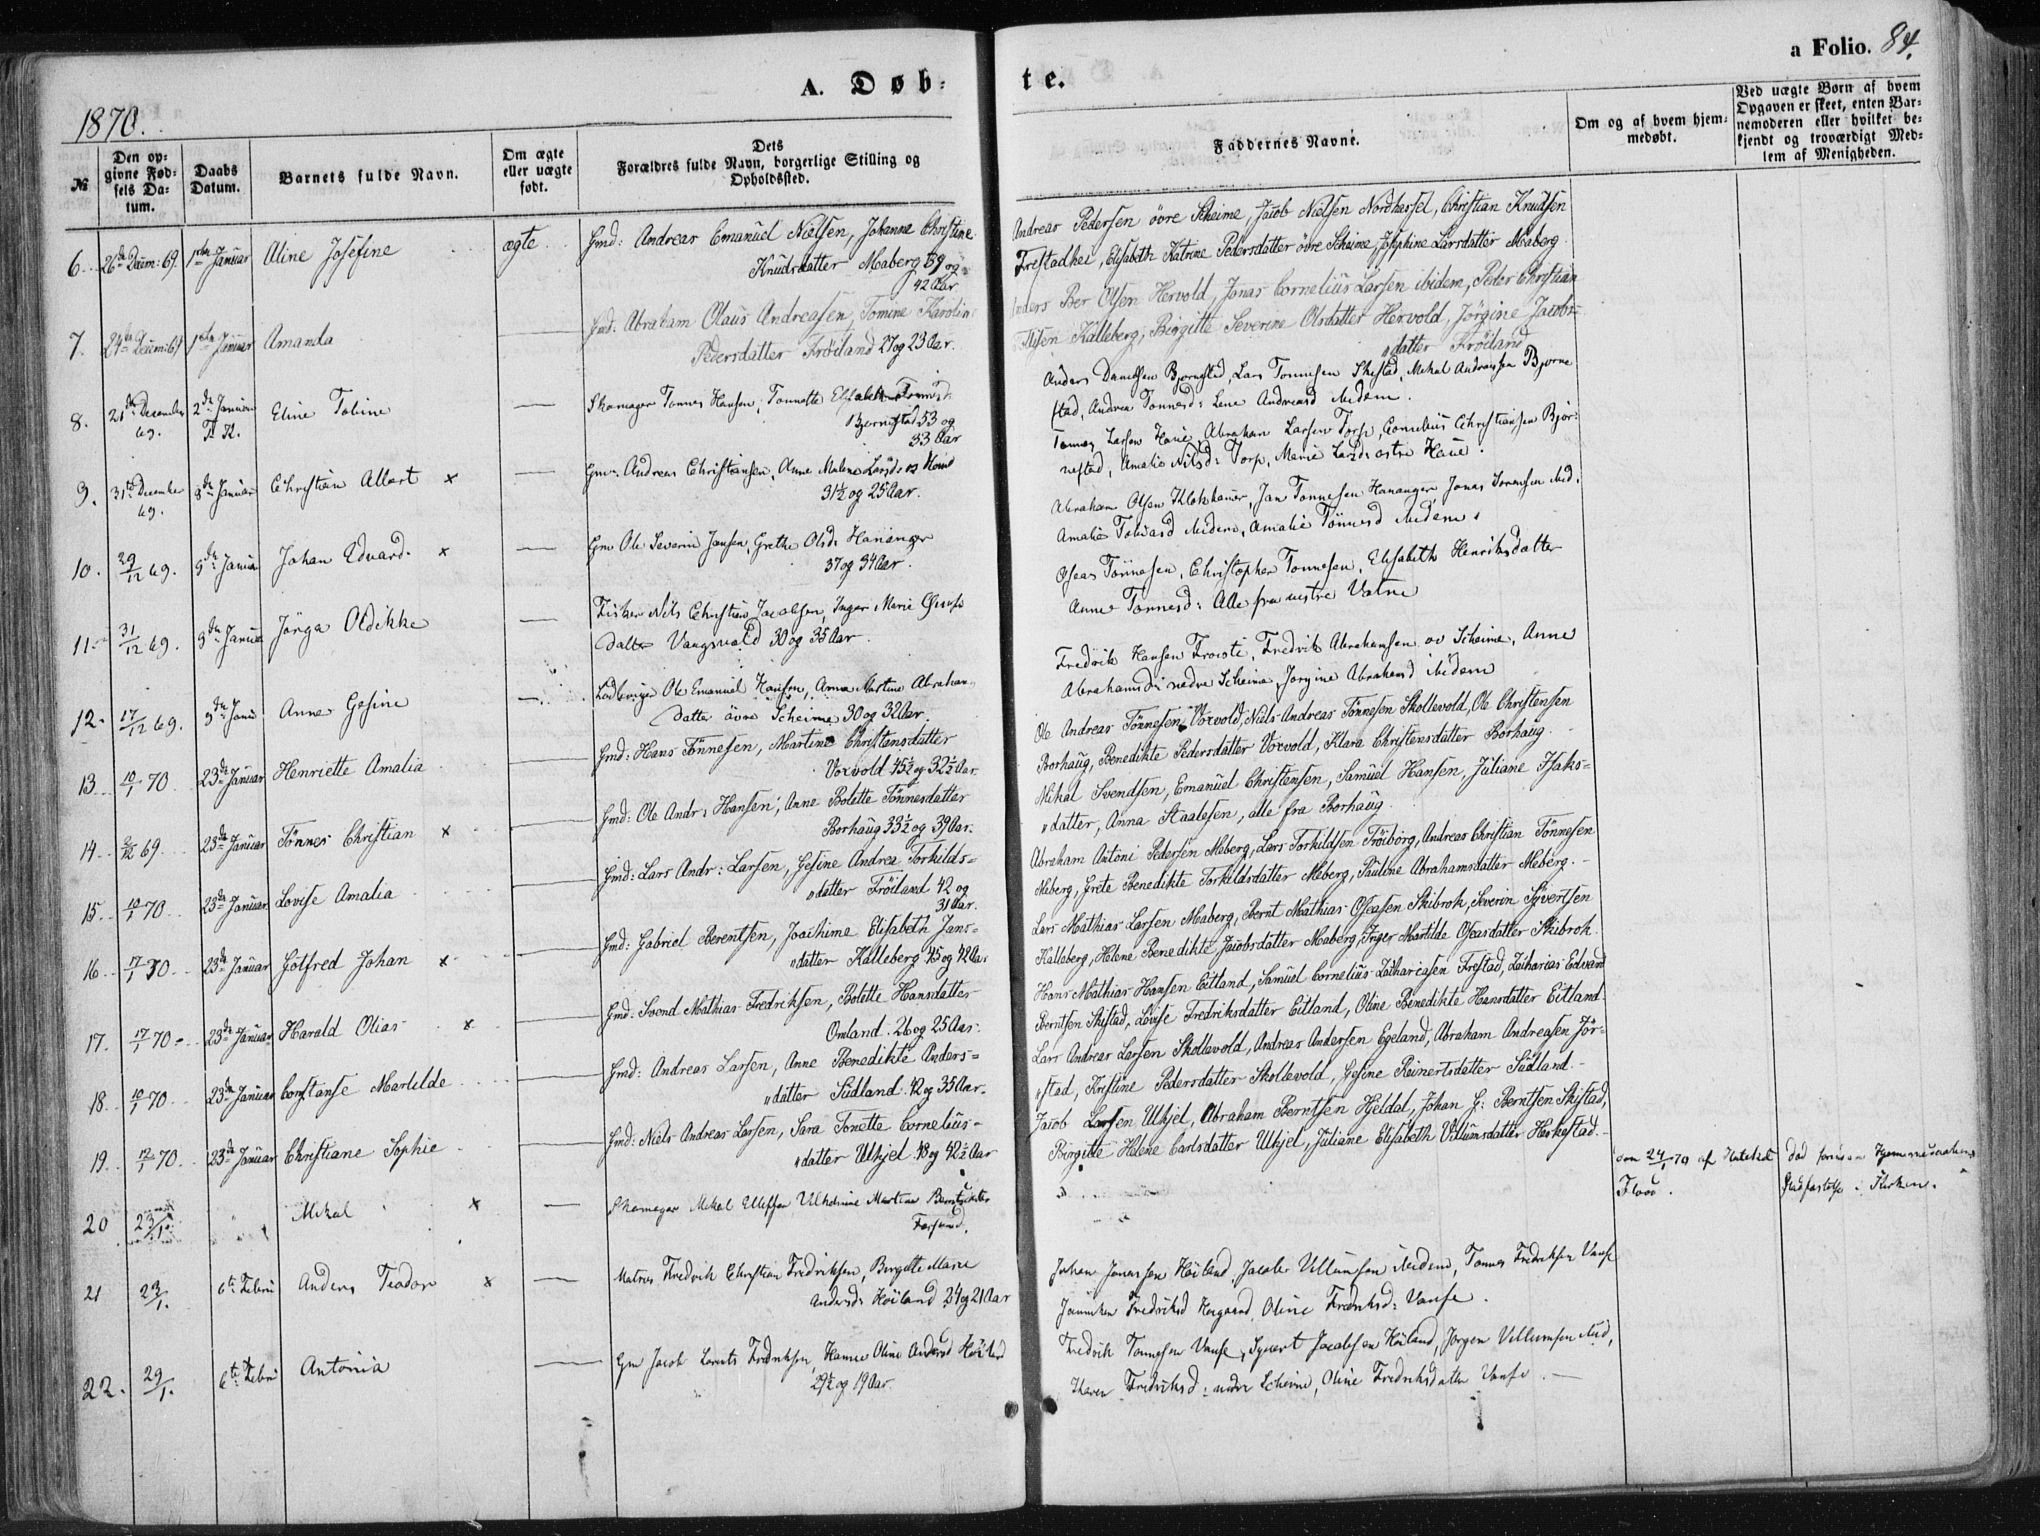 1870.
A. Døb-
te.
a Folio. 84.
№
Den op-
givne Fød-
sels Da-
tum.
Daabs
Datum.
Barnets fulde Navn.
Om ægte
eller uægte
født.
Dets
Forældres fulde Navn, borgerlige Stilling og
Opholdssted.
Faddernes Navne.
Om og af hvem hjem-
medøbt.
Ved uægte Børn af hvem
Opgaven er skeet, enten Bar-
nemoderen eller hvilket be-
kjendt og troværdigt Med-
lem af Menigheden.
6. 26de Decem: 69. 1ste Januar Aline Josefine ægte Gmd: Andreas Emanuel Nielsen, Johanne Christine
Knudsdatter Maaberg 39 og
42 Aar.
Andreas Pedersen övre Skeime, Jacob Nielsen Nordhassel, Christian Knudsen
Frestadhei, Elisabeth Katrine Pedersdatter övre Skeime, Josephine Larsdatter Maaberg.
7. 24de Decem: 69 1ste Januar Amanda Gmd: Abraham Olaus Andreasen, Tomine Karoline
Pedersdatter Fröiland 27 og 23 Aar.
Anders Ber Olsen Hervold, Jonas Cornelius Larsen ibidem, Peder Christian
Olsen Kalleberg, Birgitte Severine Olsdatter Hervold, Jörgine Jacobs=
"datter Fröiland
8. 21de December 69. 2de Januar Eline Toline Skomager Tønnes Hansen, Tonnette Elisabeth
Bjørnestad 53 og
33 Aar
Anders Danielsen Bjørnestad, Lars Tønnesen Skistad, Mikal Andreassen Bjørne
stad, Andrea Tønnesd: Lene Andreasd ibidem.
9. 31te December 69. Januar Christian Albert x Gmd. Andreas Christiansen, Anne Malene Larsd:
31½ og 25 Aar.
Larsen Haue, Abraham Larsen Torp, Cornelius Christiansen Bjør:
nestad, Amalie Nilsd: Torp, Marie Larsd: østre Haue.
10. 29/12 69. Januar Johan Edvard. x Gm Ole Severin Jansen, Grethe Olsd: Hananger
37 og 34 Aar.
Abraham Olsen Klokhaue, Jan Tønnesen Hananger, Jonas Sørensen ibid.
Amalie ibidem, Amalie Tönnesd ibidem.
11. 31/12 69. Januar Jørga Oldikke Fisker Nils Christian Jacobsen, Inger Marie
datter Vangsvold 30 og 35 Aar.
Oseas Tönnesen, Christopher Tønnesen, Elisabeth Henriksdatter
Anne Tønnesd: Alle fra vestre Vatne
12. 17/12 69. Anne Gesine Ole Emanuel Hansen, Anne Martine Abraham
datter övre Skeime 30 og 32 Aar.
Fredrik Hansen, Fredrik Abrahamsen öv Skeime, Anne
Abrahamsd: nedre Skeime, Jørgine Abrahamsd ibidem
13. 10/1 70. 23de Januar Henriette Amalia Gmd: Hans Tönnesen, Martine Christensdatter
Vorvold 45½ og 32½ Aar.
Ole Andreas Tönnesen Vorvold, Niels Andreas Tönnesen Skollevold, Ole Christensen
Borhaug, Benedikte Pedersdatter Vorvold, Klara Christensdatter Borhaug.
14. 69. 23de Januar Tönnes Christian x Gmd: Ole Andr: Hansen, Anne Bolette Tönnesdatter
Borhaug 33½ og 39 Aar.
Mikal Svendsen, Emanuel Christensen, Samuel Hansen, Juliane Isaks=
"datter, Anna Staalesen, alle fra Borhaug.
15. 10/1 70. 23de Januar Lovise Amalia Gmd: Lars Andr: Larsen, Gesine Andrea Torkilds=
"datter Fröiland 42 og
31 Aar.
Abraham Antoni Pedersen Meberg, Lars Torkildsen Fröiborg, Andreas Christian Tönnesen
Meberg, Grete Benedikte Torkildsdatter Meberg, Pauline Abrahamsdatter Meberg.
16. 17/1 70. 23de Januar Gotfred Johan x Gmd: Gabriel Berentsen, Joachime Elisabeth Jans=
"datter Kalleberg 45 og 42 Aar
Lars Mathias Larsen Maaberg, Bernt Mathias Oseasen Skibrok, Severin Syvertsen
Kalleberg, Helene Benedikte Jacobsdatter Maaberg, Inger Martilde Oseasdatter Skibrok.
17. 17/1 70. 23de Januar Harald Olias x Gmd: Svend Mathias Fredriksen, Bolette Hansdatter
Omland. 26 og 25 Aar.
Hans Mathias Hansen Eitland, Samuel Cornelius Zachariasen Frestad, Zacharias Edvard
Berntsen Skistad, Lovise Fredriksdatter Eitland, Oline Benedikte Hansdatter Eitland.
18. 10/1 70. 23de Januar Constanse Martilde Gmd: Andreas Larsen, Anne Benedikte Anders=
"datter Sudland 42 og 35 Aar.
Lars Andreas Larsen Skollevold, Andreas Andersen Egeland, Abraham Andreasen Jör-
"stad, Kristine Pedersdatter Skollevold, Gesine Reinertsdatter Sudland.
19. 12/1 70. 23de Januar Christiane Sophie Gmd: Niels Andreas Larsen, Sara Tonette Cornelius-
"datter Ulkjel. 48 og 42½ Aar
Jacob Larsen Ulkjel, Abraham Berntsen Hjeldal, Johan G: Berntsen Skistad,
Birgitte Helene Carlsdatter Ulkjel, Juliane Elisabeth Villumsdatter Heskestad.
20 23/1. Mikal x Skomager Mikal Vilhelmine Martine Berntsdatter
Farsund.
24/1 70 af
Død
21 23/1. 6te Febru Anders Teodor x Matros Fredrik Christian Fredriksen, Birgitte Marie
Andersd: Höiland 24 og 21 Aar
Johan Jonassen Höiland, Jacob Villumsen ibidem, Tønnes Fredriksen Vanse
Fredriksd, Oline Fredriksd: Vanse.
22. 29/1. 6te Febru Antonia Gm Jacob Lorents Fredriksen, Hanne Oline Andersd Höiland
29½ og 19 Aar.
Fredrik Tønnesen Vanse, Syvert Jacobsen Höiland, Jørgen Villumsen ibid,
Karen Fredriksd: nedre Skeime, Oline Fredriksdatter Vanse.